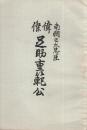 南朝の大忠臣
偉傑
足助重範公